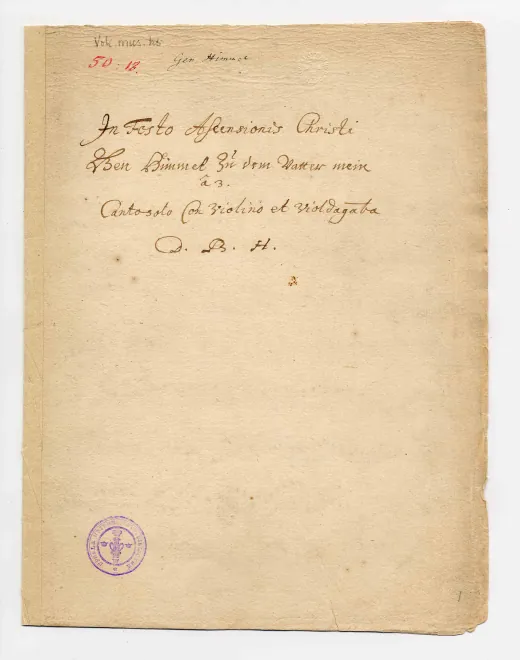 Vok. mus. hs.
50:12. Gen Himmel
In Festo Ascensionis Christi
Gen Himmel Zu dem Vatter mein
â 3.
Canto solo Con Violino et Violdagâba
D. B. H.
1